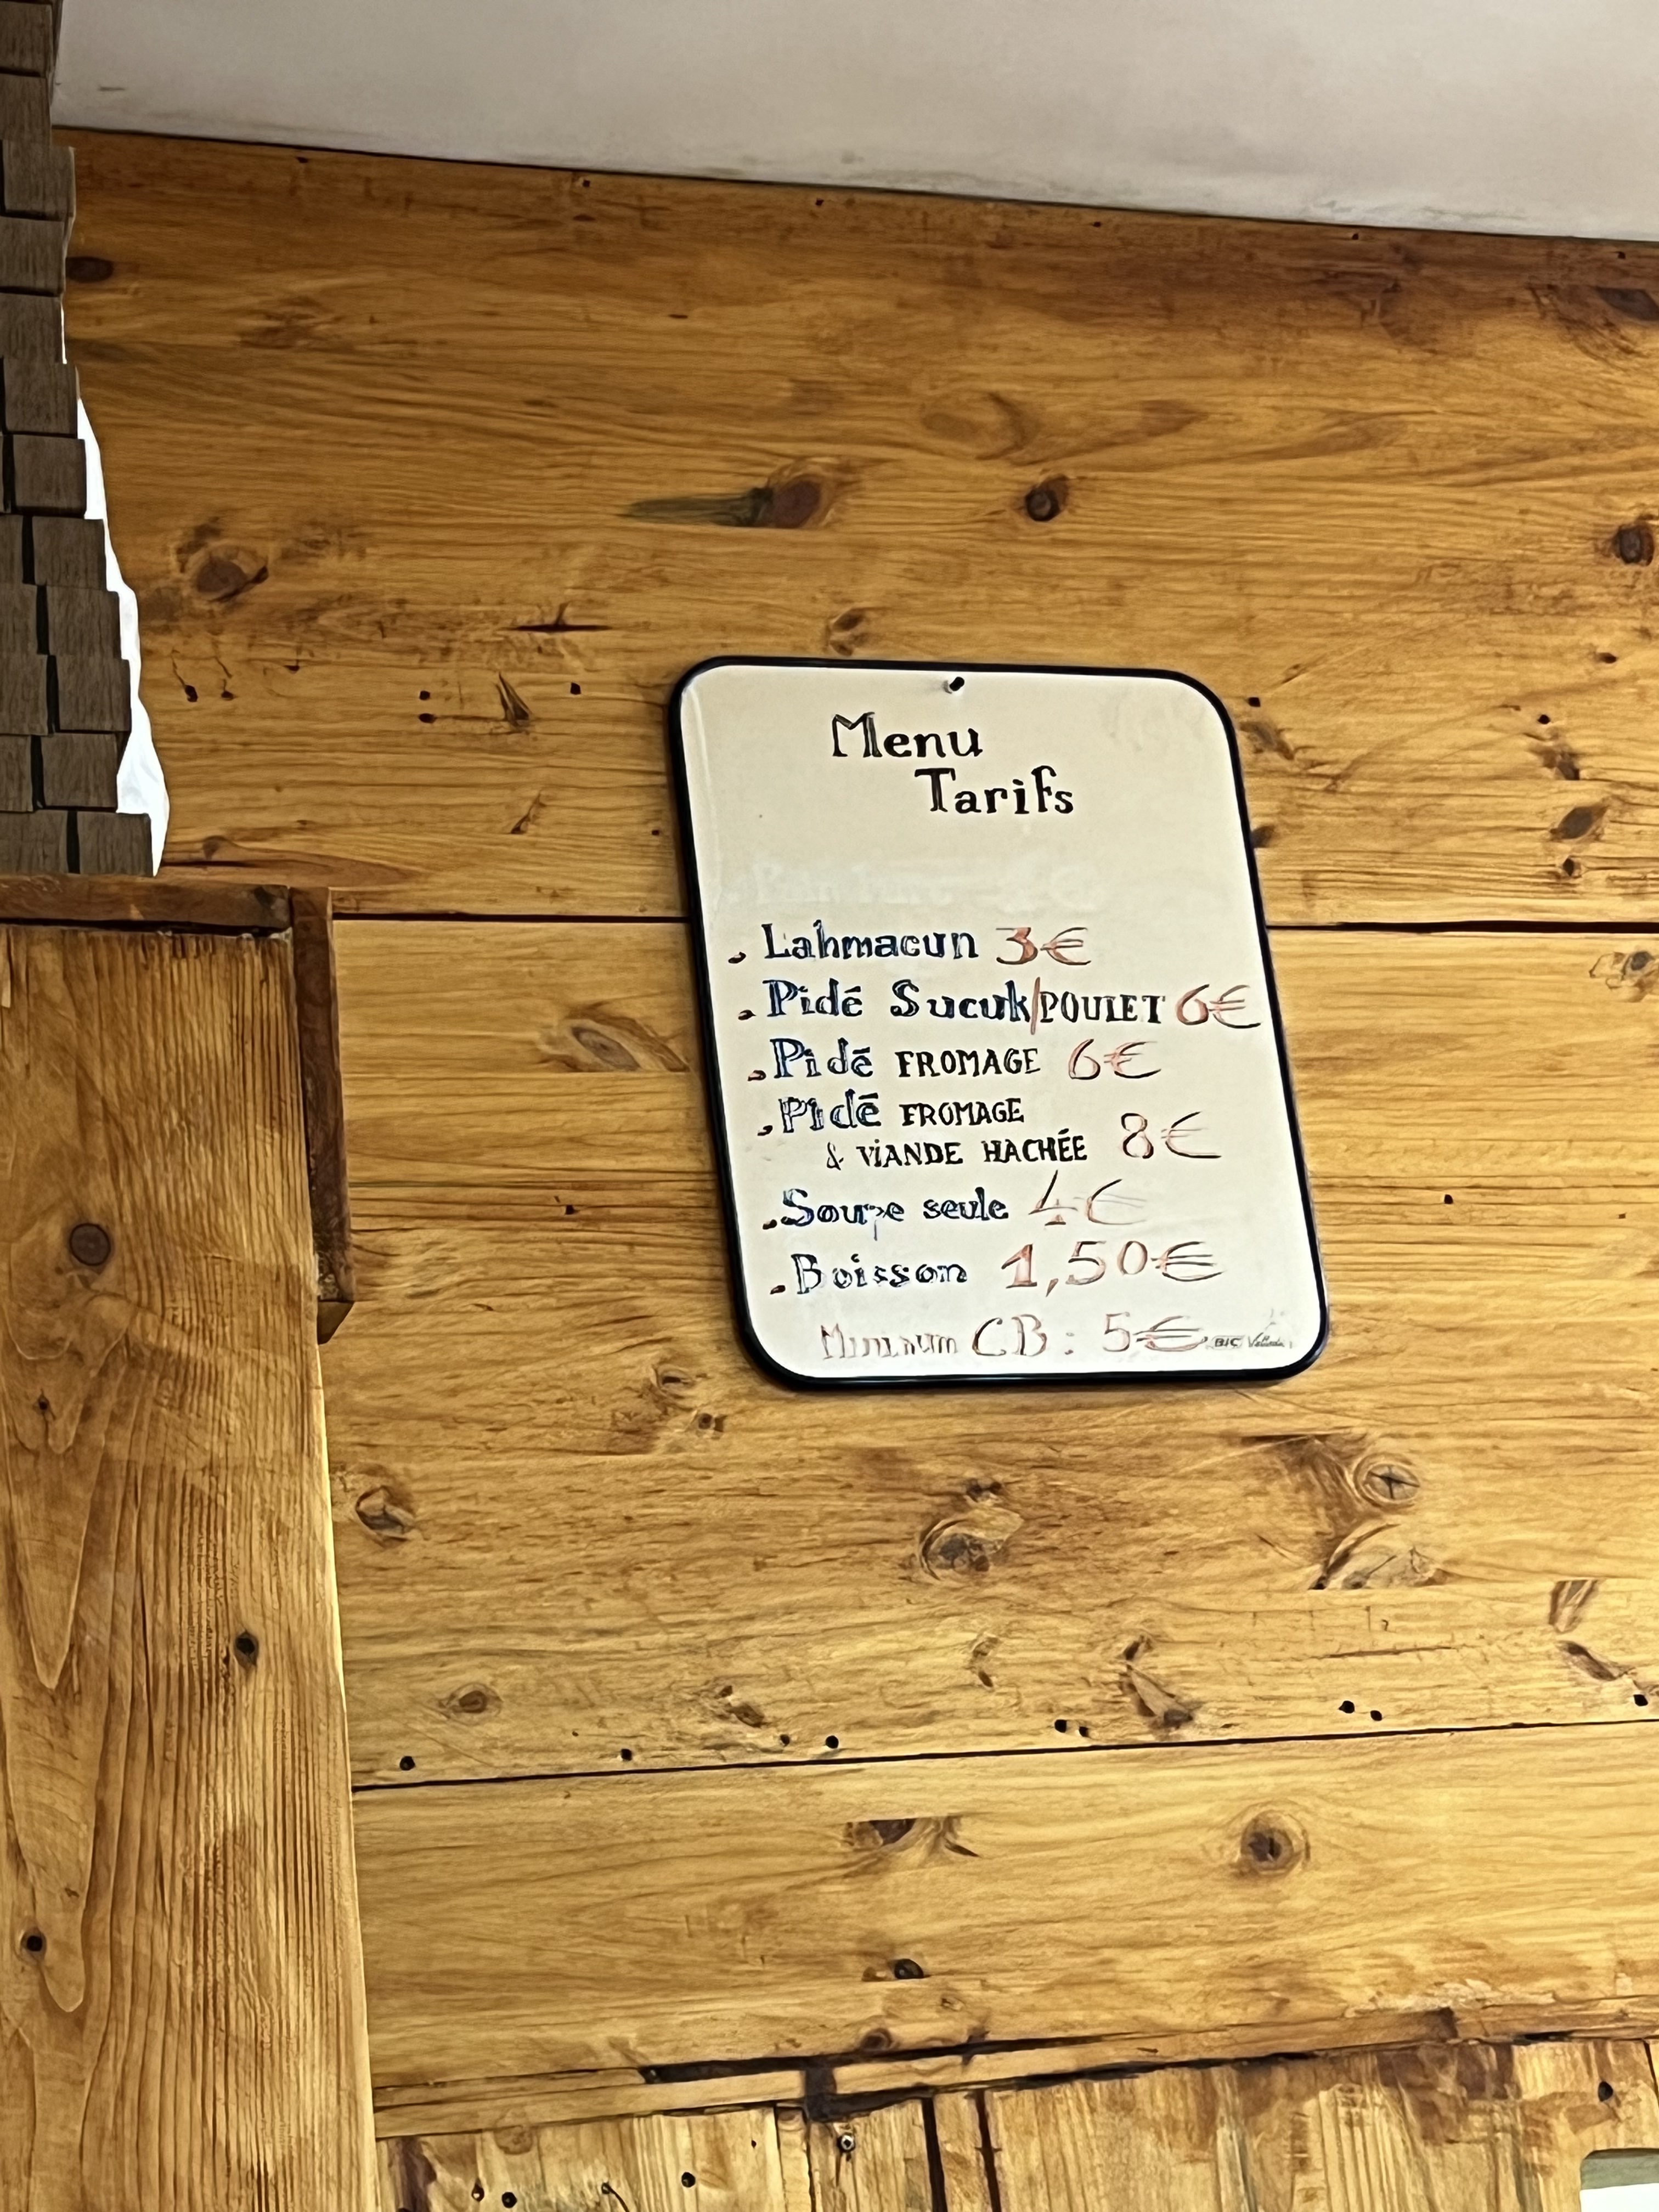 Menu
Tarifs
Lahmacun 3€
Pidé Sucuk/POULET 6€
Pidé FROMAGE 6€
Pidé FROMAGE
& VIANDE HACHÉE 8€
Soupe seule 4€
Boisson 1,50€
Minimum CB : 5€
BIC Velleda